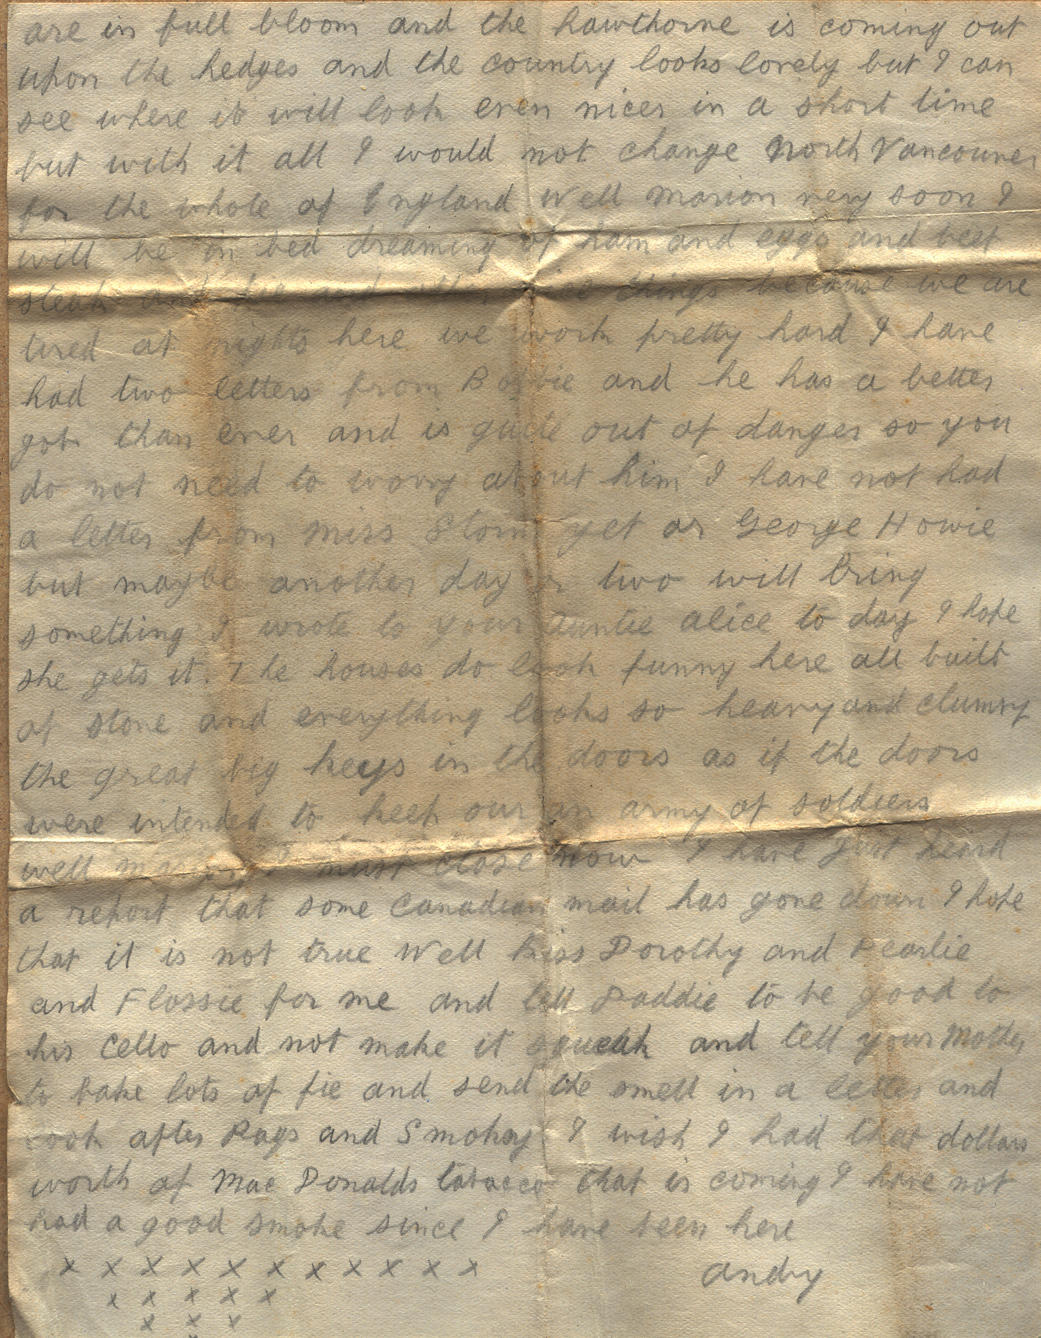 are in full bloom and the hawthorne is coming out
upon the hedges and the country looks lovely but I can
see where it will look even nicer in a short time
but with it all I would not change North Vancouver
for the whole of England Well Marion very soon I
will be in bed dreaming of ham and eggs and beef
steak and pie and things because we are
tired at nights here we work pretty hard I have
had two letters from Bobbie and he has a better
got than ever and is quite out of danger so you
do not need to worry about him I have not had
a letter from Miss yet or George Howie
but maybe another day or two will bring
something I wrote to your Auntie Alice to day I hope
she gets it. The houses do look funny here all built
of stone and everything looks so heavy and clumsy
the great big keys in the doors as if the doors
were intended to keep our an army of soldiers
well I must close now I have just heard
a report that some Canadian mail has gone down I hope
that it is not true Well Kiss Dorothy and Pearlie
and Flossie for me and tell Daddie to be good to
his Cello and not make it squeak and tell your Mother
to bake lots of pie and send the smell in a letter and
look after Rags and Smokey I wish I had that dollars
worth of Mac Donalds tobacco that is coming I have not
had a good smoke since I have been here
x x x x x x x x x x x Andy
x x x x x
x x x